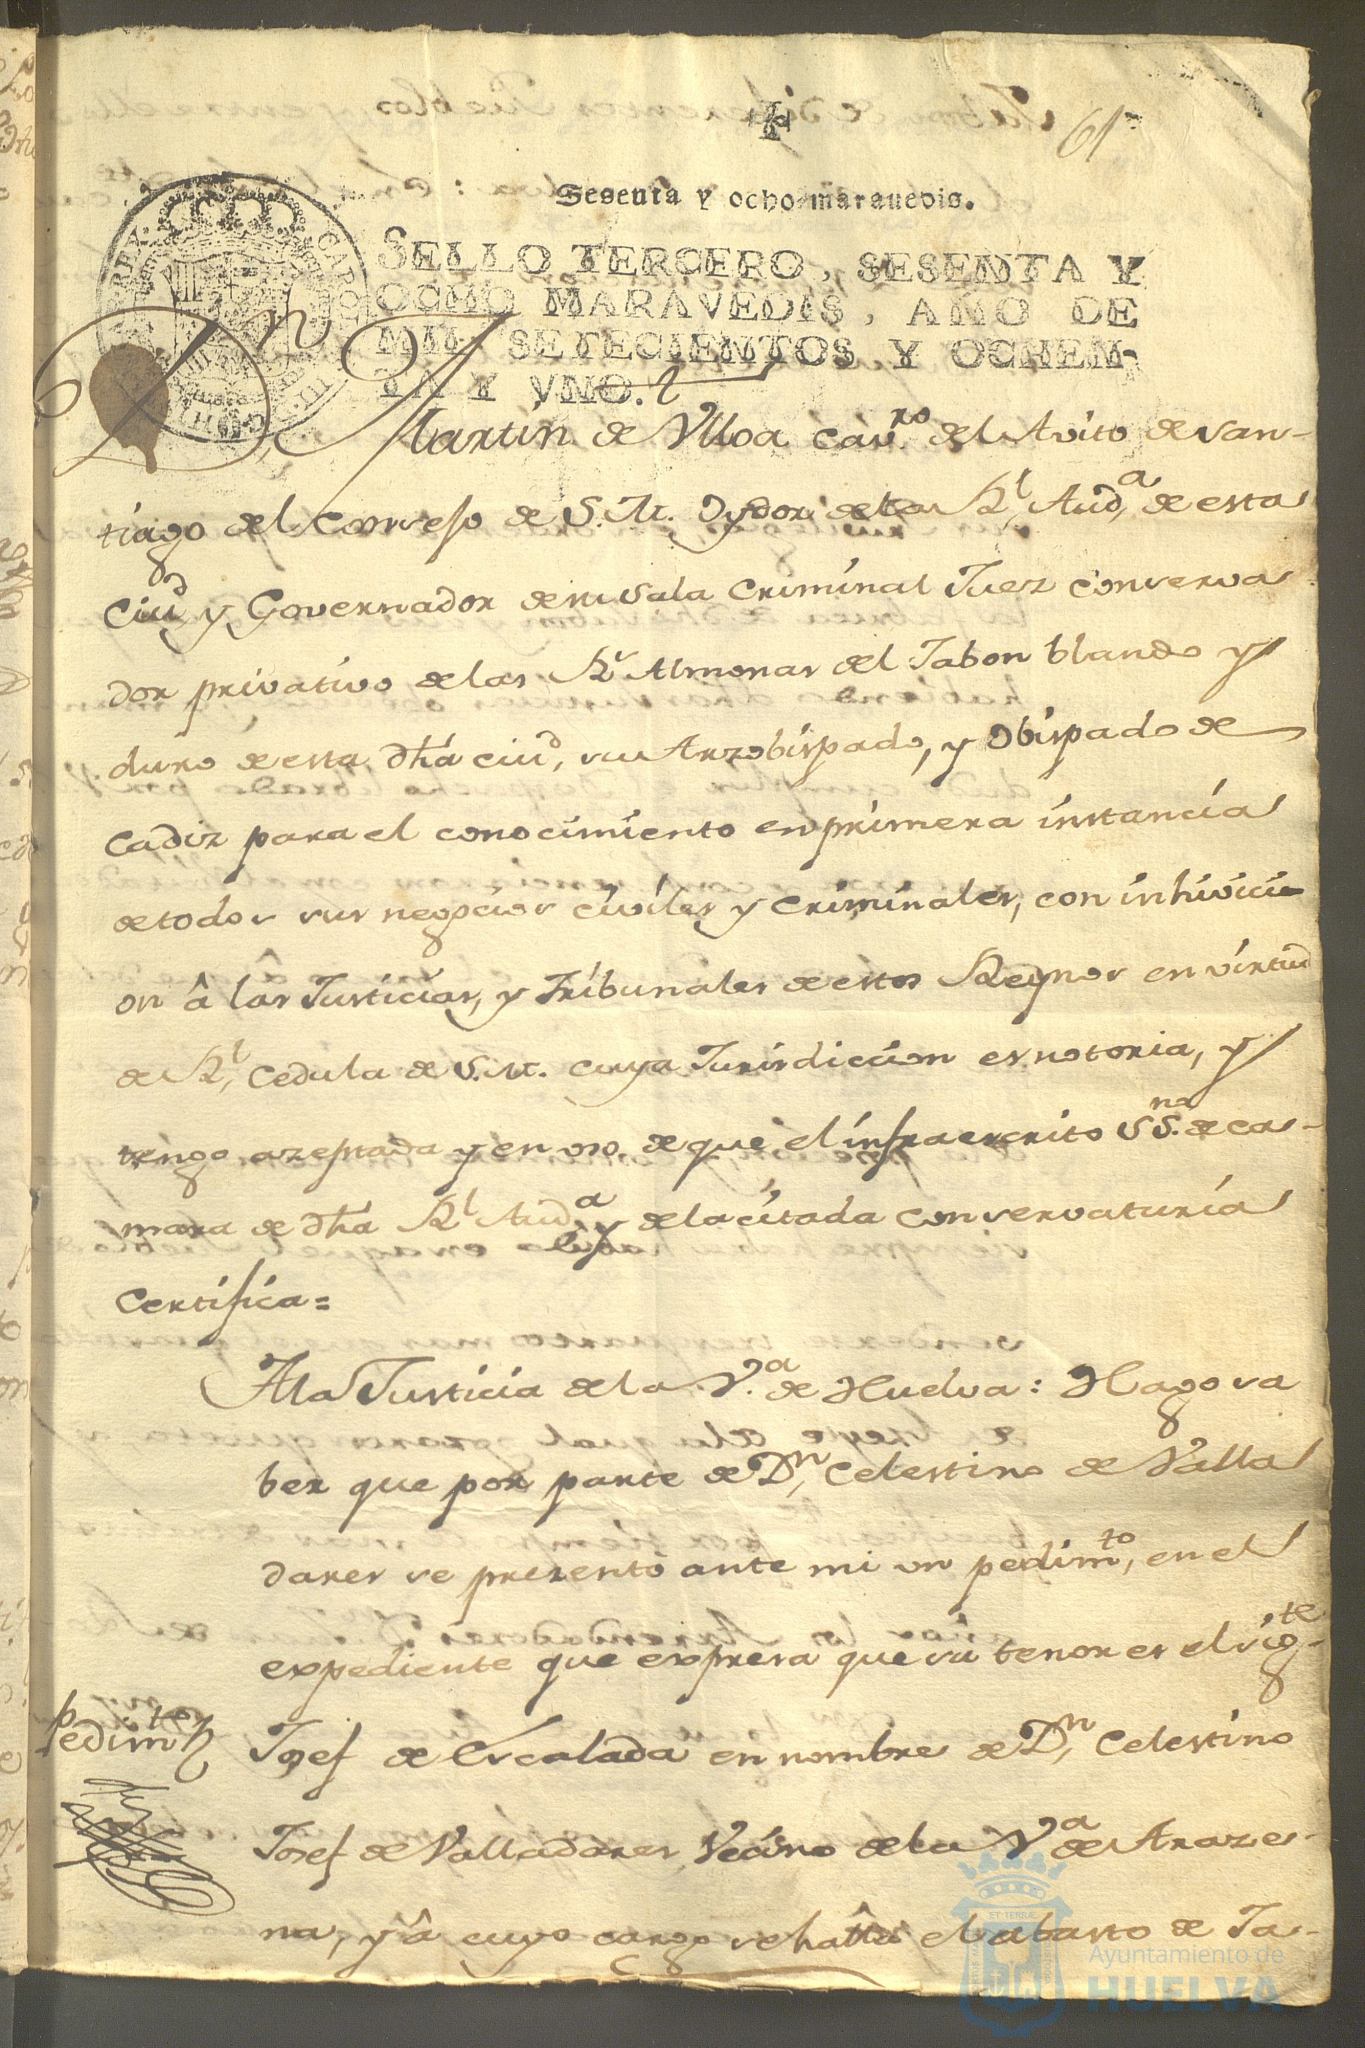 61
Sesenta y ocho maravedis.
SELLO TERCERO, SESENTA Y
OCHO MARAVEDIS, AÑO DE
MIL SETECIENTOS Y OCHEN-
TA Y VNO.
Dn Martin de Ulloa cavro. del Avito de San-
tiago del Consejo de S.M. Oydor de la Rl. Auda. de esta
Ciud. y Governador de su Sala Criminal Juez Conserva
dor privativo de las Rs. Almonas del Jabon blando y
duro de esta dha ciud, su Arzobispado, y Obispado de
Cadiz para el conocimiento en primera instancia
de todos sus negocios civiles y criminales, con inhivici
on â las Justicias, y Tribunales de estos Reynos en virtud
de Rl. Cedula de S.M. cuya Jurisdiccion es notoria, y
tengo azeptada y en uso. de que el infraescrito SSno. de ca-
mara de dha Rl. Auda. y de la citada conservaturia
Certifica=
A la Justicia de la Va. de Huelva: Hago sa
ber que por parte de Dn. Celestino de Valla
dares se presentó ante mi un pedimto, en el
expediente que expresa que su tenor es el sigte.
Pedimto
Josef de Escalada en nombre de Dn. Celestino
Josef de Valladares Vecino de la Va. de Araze-
na, y â cuyo cargo se halla el abasto de Ja-
ET TERRÆ
Ayuntamiento de
HUELVA